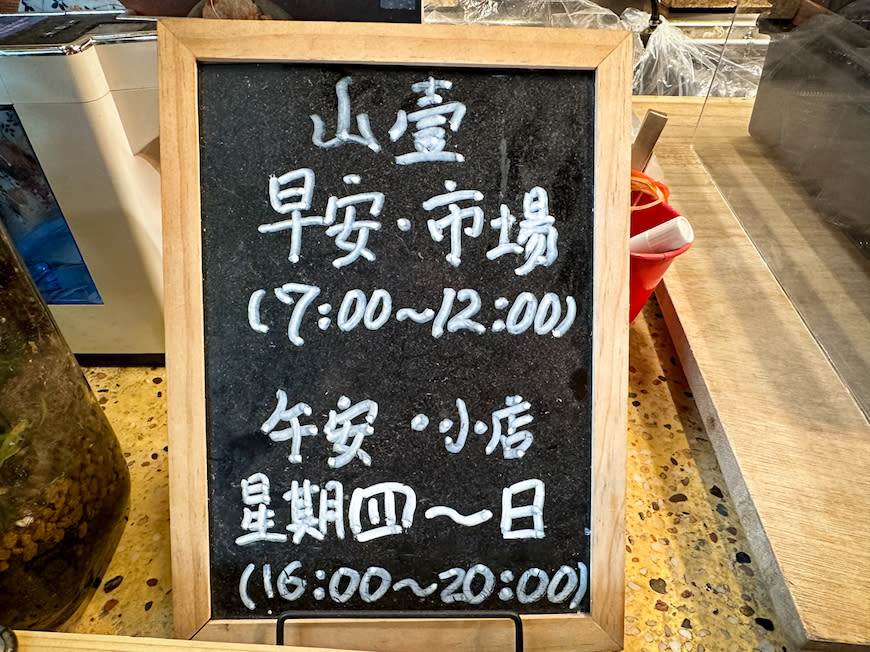 山壹
早安·市場
(7:00~12:00)
午安·小店
星期四~日
(16:00~20:00)